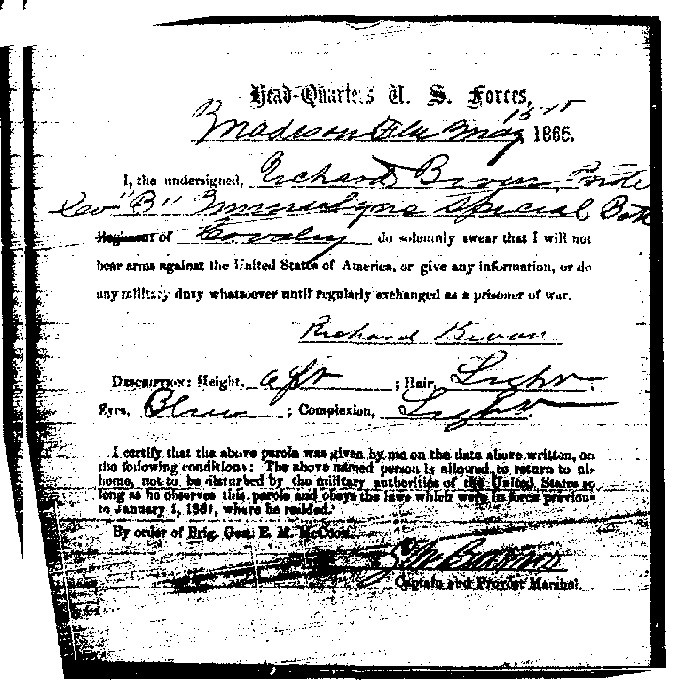 Head-Quarters U. S. Forces,
Madison Fla May 15 1865.
I, the undersigned, Richard Bevan
"B" Special
Regiment of Cavalry do solemnly swear that I will not
bear arms against the United States of America, or give any information, or do
any military duty whatsoever until regularly exchanged as a prisoner of war.
Richard Bevan
DESCRIPTION: Height, 6 ft ; Hair, Light.
Eyes, Blue ; Complexion, Light.
I certify that the above parole was given by me on the date above written, on
the following conditions: The above named person is allowed to return to his
home, not to be disturbed by the military authorities of the United States so
long as he observes this parole and obeys the laws which were in force previous
to January 1, 1861, where he resided.
By order of Brig. Gen. E. M. McCook.
Captain and Provost Marshal.